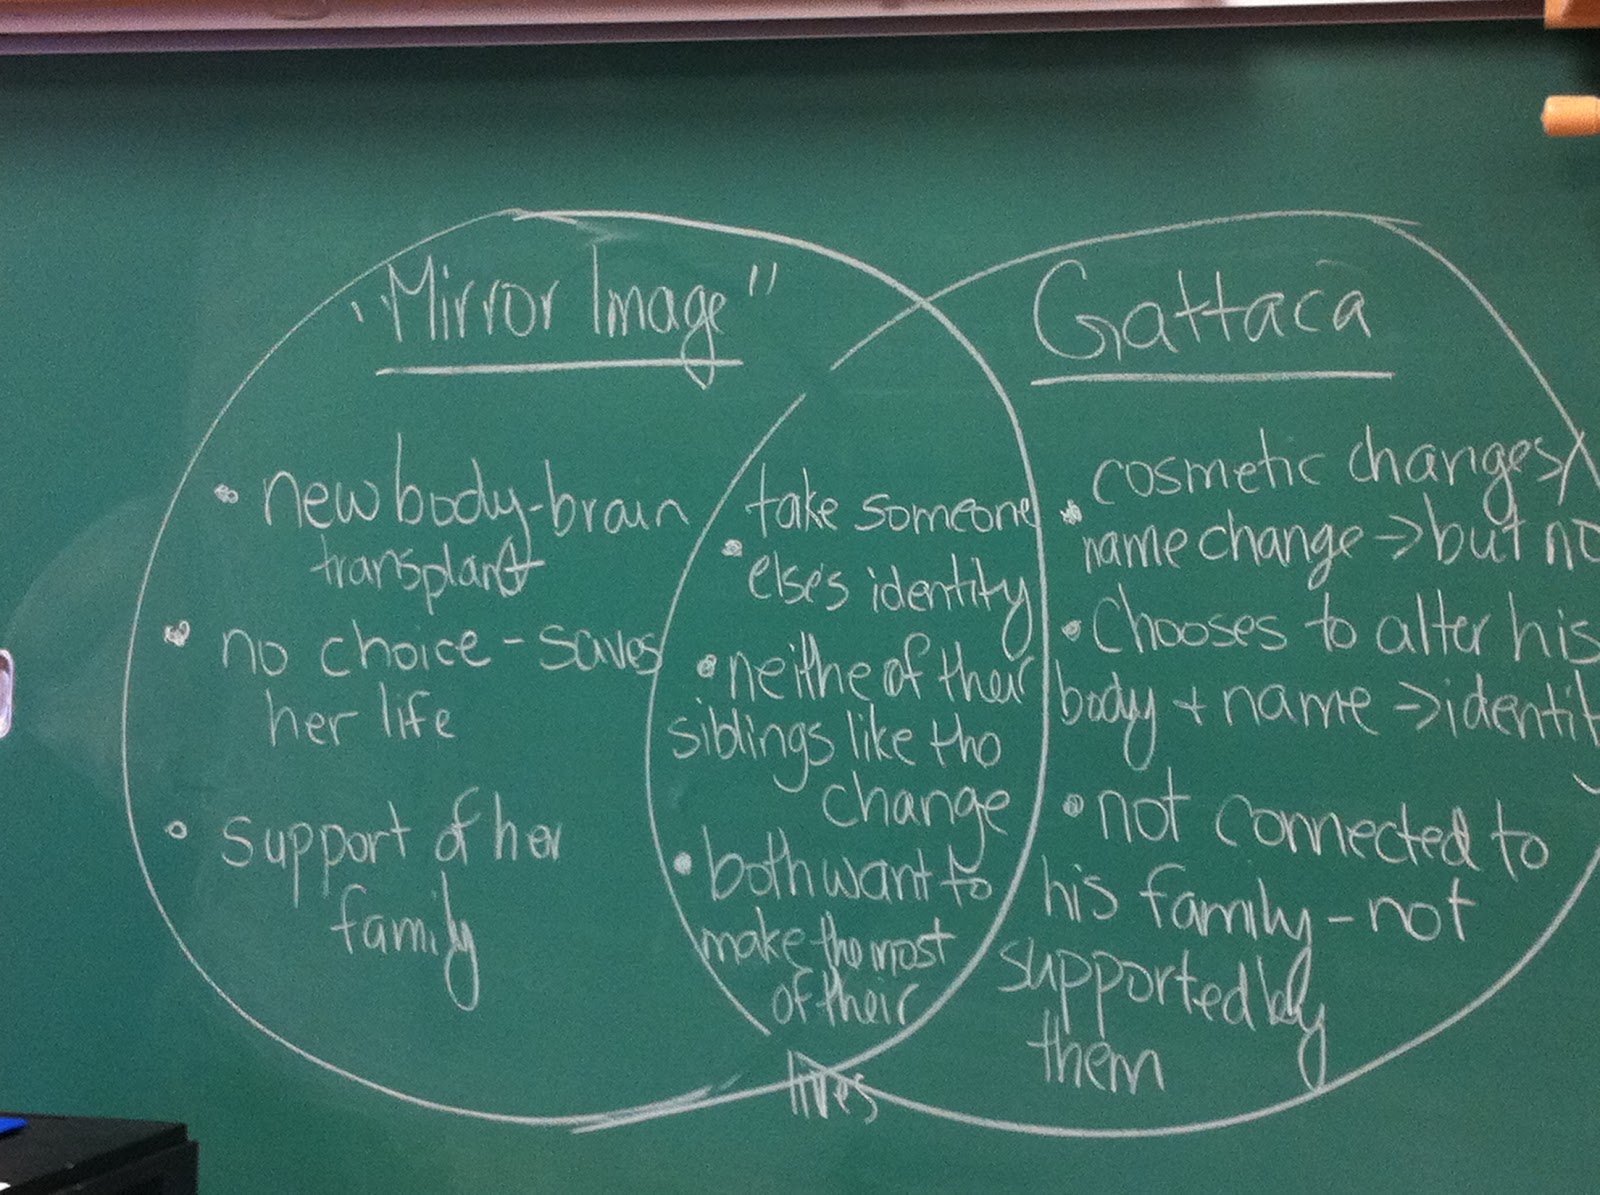 "Mirror Image"
• new body-brain
transplant
• no choice - saves
her life
• support of her
family
take someone
• else's identity
• neithe of their
siblings like the
change
• both want to
make the most
of their
lives
Gattaca
cosmetic changes/
• name change → but no
• Chooses to alter his
body + name → identit
• not connected to
his family - not
supported by
them